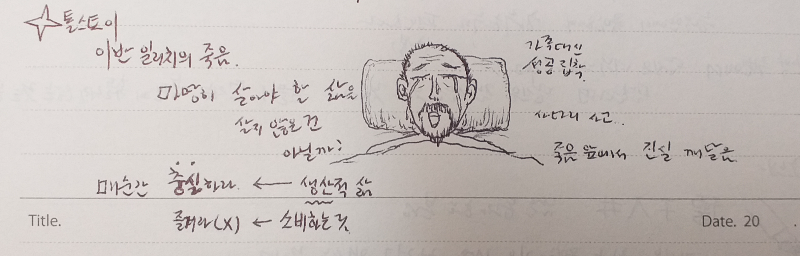 톨스토이
이반 일리치의 죽음.
마땅히 살아야 할 삶을
살지 않은 건
아닐까?
매순간 충실하라. ← 생산적 삶
즐겨라(X) ← 소비하는 것
가족대신
성공집착
사다리 사고.
죽음 앞에서 진실 깨달음.
Title.
Date. 20 .